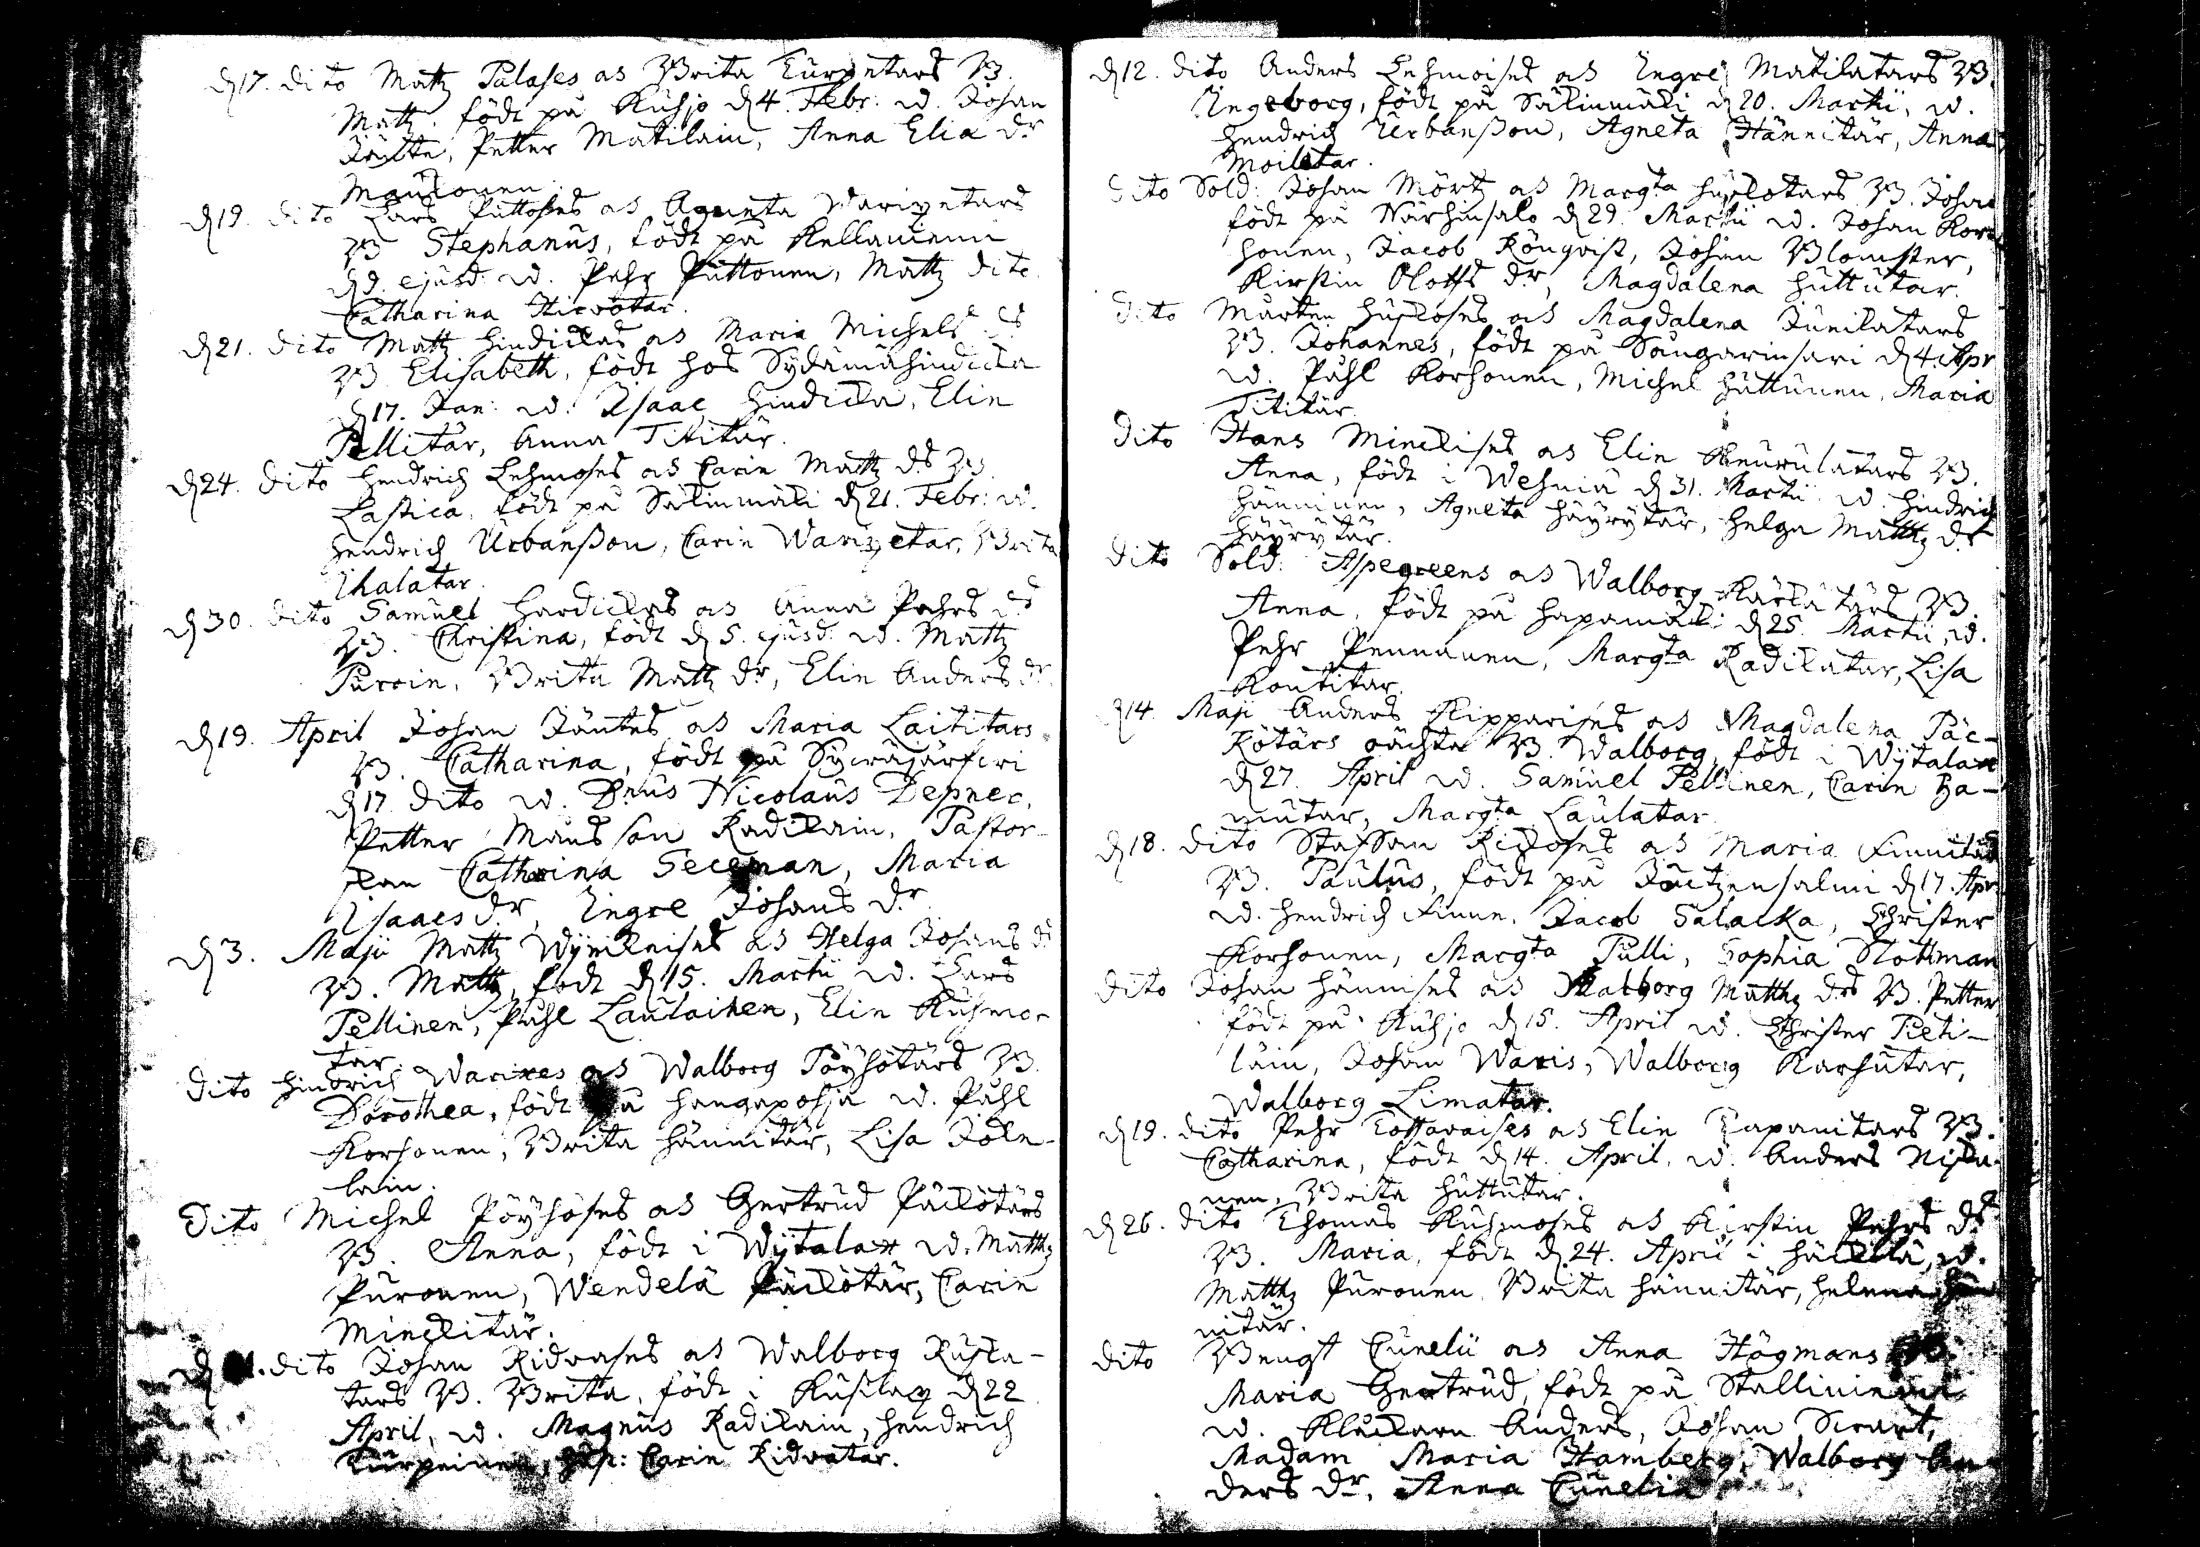 d 17. dito Matz Palases as Brita Turpetars B.
Matz. födt på Ruhjo d 4. Febr: w. Johan
Jäntte, Petter Matilain, Anna Elia dr
Maukonen.
d 19. dito Lars Puttoses as Agneta Warixetars
B Stephanus, födt på Kellaniemi
d 9. ejusd: w. Pehr Puttonen, Matz dito
Catharina Hirvotar.
d 21. dito Matz Hindickas as Maria Michels ds
B. Elisabeth, födt hos Sydämähindicka
d 17. Jan: w. Isaac Hindicka, Elin
Pellitär, Anna Tititär.
d 24. dito Hendrich Lehmoses as Carin Mattz ds B.
Lastica, födt på Sälinmäki d 21. Febr: w.
Hendrich Urbansson, Carin Warixetar, Brita
Ihalatar.
d 30. dito Samuel Hardickas as Anna Pehrs ds
B. Christina, födt d 5. ejusd: w. Mattz
Puroin, Brita Mattz dr, Elin Anders dr.
d 19. April Johan Jäntes as Maria Laititars
B. Catharina, födt på Syväjärfwi
d 17. dito w. Dnus Nicolaus Depner,
Petter Månsson Radikain, Pastor-
skan Catharina Seceman, Maria
Isaacs dr, Ingre Johans dr.
d 3. Maji Mattz Wynikeises as Helga Johans ds
B. Mattz, födt d 15. Martii w. Lars
Pellinen, Påhl Laulainen, Elin Kuhmo-
tar.
dito Hindrich Warixes as Walborg Pöyhötärs B.
Dorothea, födt på Hangapohja w. Påhl
Korhonen, Brita Hännitär, Lisa Jole-
lain.
Dito Michel Pöyhöses as Gertrud Päckötärs
B. Anna, födt i Wijtala w. Matthz
Puronen, Wendela Päckötär, Carin
Minckitär.
dito Johan Ridvases as Walborg Ruska-
tars B. Brita, födt i Rusila d 22
April, w. Magnus Radikain, Hendrich
Turpeinen, Carin Ridvatar.
d 12. dito Anders Lehmoises as Ingre Matilatars B.
Ingeborg, födt på Sälinmäki d 20. Martii, w.
Hendrich Urbansson, Agneta Hännitär, Anna
Moilatar.
Dito Sold: Johan Mörtz as Margta Huskotars B. Johan
födt på Närhinsalo d 29. Martii w. Johan Kor-
honen, Jacob Rönqvist, Johan Blomster,
Kirstin Oloffs dr, Magdalena Huttutar.
Dito Mårten Huskoses as Magdalena Junikatars
B. Johannes, födt på Sångarinsari d 4. Apr
w. Påhl Korhonen, Michel Huttunen, Maria
Titikär.
Dito Hans Minckises as Elin Keurulatars B.
Anna, födt i Wehniä d 31. Martii w. Hindrich
Hänninen, Agneta Häyrytär, Helga Matthz dr
Häyrytär.
Dito Sold: Aspegreens as Walborg Kärkätärs B.
Anna, födt på Hapamäki d 25. Martii, w.
Pehr Pennanen, Margta Radikatar, Lisa
Koutitar.
d 14. Maji Anders Kipparises as Magdalena Päc-
kötärs oächta B. Walborg, födt i Wijtala
d 27. April w. Samuel Pellinen, Carin Ha-
mutar, Margta Laulatar.
d 18. dito Staffan Rickoses as Maria Finnitars
B. Paulus, födt på Jäutzensalmi d 17. Apr
w. Hendrich Finne, Jacob Salacka, Christer
Korhonen, Margta Pulli, Sophia Slottman
Dito Johan Hännises as Walborg Matthz drs B. Petter
födt på Ruhjo d 15. April w. Christer Pieti-
läin, Johan Waris, Walborg Karhutar,
Walborg Limatar.
d 19. dito Pehr Tossavaises as Elin Tapanitars B.
Catharina, födt d 14. April, w. Anders Niska-
nen, Brita Huttutar.
d 26. dito Thomas Kuhmoses as Kirstin Pehrs ds
B. Maria, födt d 24. April i Häckilä, w.
Matthz Puronen, Brita Hännitär, Helena Hän-
nitär.
Dito Bengt Cunelii as Anna Högmans B.
Maria Gertrud, födt på Talliniemi
w. Kluckarn Anders, Johan Swart,
Madam Maria Hamberg, Walborg An-
ders dr, Anna Cunelia